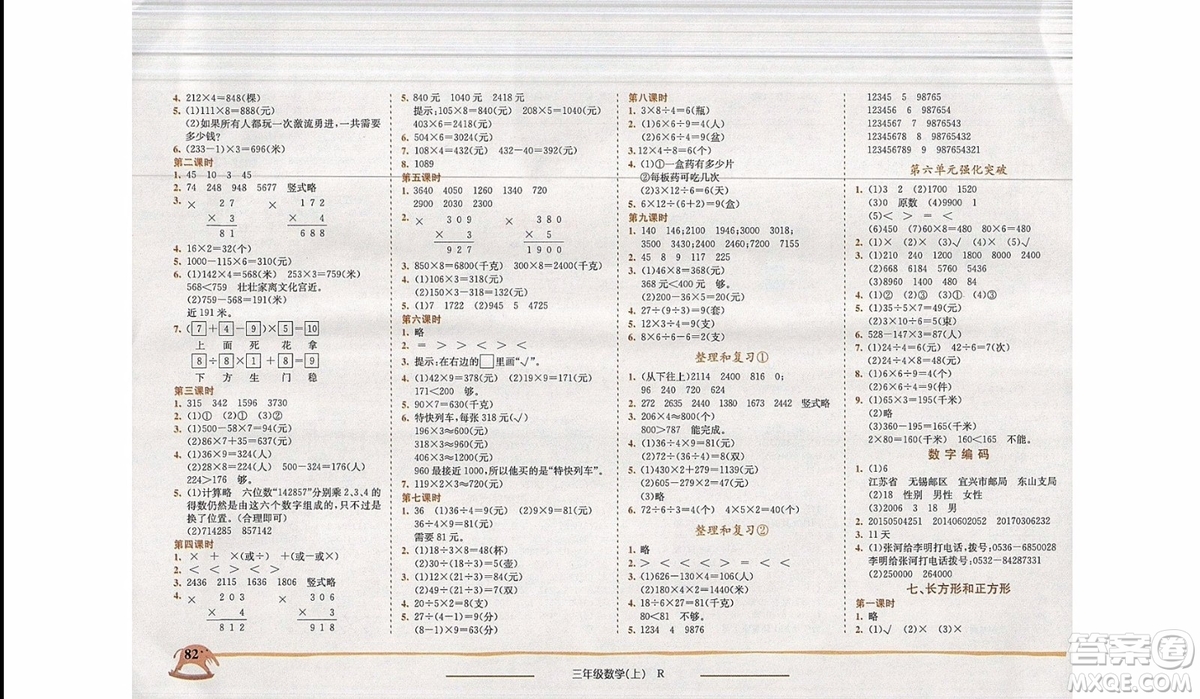 4. 212×4=848(棵)
5. (1)111×8=888(元)
(2)如果所有人都玩一次激流勇进，一共需要
多少钱？
6. (233-1)×3=696(米)
第二课时
1. 45 10 3 45
2. 74 248 948 5677 竖式略
3. × 2 7
× 3
8 1
× 1 7 2
× 4
6 8 8
4. 16×2=32(个)
5. 1000-115×6=310(米)
6. (1)142×4=568(米) 253×3=759(米)
568<759 壮壮家离文化宫近。
(2)759-568=191(米)
近191米。
7. (7+4-9)×5=10
上 面 死 花 拿
8÷8×1+8=9
下 方 生 门 稳
第三课时
1. 315 342 1596 3730
2. (1)① (2)① (3)②
3. (1)500-58×7=94(元)
(2)86×7+35=637(元)
4. (1)36×9=324(人)
(2)28×8=224(人) 500-324=176(人)
224>176 够。
5. (1)计算略 六位数“142857”分别乘2、3、4的
得数仍然是由这六个数字组成的，只是
换了位置。(合理即可)
(2)714285 857142
第四课时
1. × + ×(或÷) +(或-或×)
2. < < < > < >
3. 2436 2115 1636 1806 竖式略
4. × 2 0 3
× 4
8 1 2
× 3 0 6
× 3
9 1 8
5. 840元 1040元 2418元
提示：105×8=840(元) 208×5=1040(元)
403×6=2418(元)
6. 504×6=3024(元)
7. 108×4=432(元) 432-40=392(元)
8. 1089
第五课时
1. 3640 4050 1260 1340 720
2900 2030 2800
2. × 3 0 9
× 3
9 2 7
× 3 8 0
× 5
1 9 0 0
3. 850×8=6800(千克) 300×8=2400(千克)
4. (1)106×3=318(元)
(2)150×3-318=132(元)
5. (1)7 1722 (2)945 5 4725
第六课时
1. 略
2. = > < > > <
3. 提示：在右边的□里画“√”。
4. (1)42×9=378(元) (2)19×9=171(元)
171<200 够。
5. 90×7=630(元)
6. 特快列车，每张318元(√)
216×3≈600(元)
318×3≈960(元)
406×3≈1200(元)
960最接近1000，所以他买的是“特快列车”。
7. 120×6=720(元)
第七课时
1. 36 (1)36÷4=9(元) (2)9×9=81(元)
36÷4×9=81(元)
需要81元。
2. (1)18÷3×8=48(杯)
(2)30÷(18÷3)=5(壶)
3. (1)24÷3×9=72(元)
(2)40÷(24÷3)=5(个)
4. 20÷5×2=8(支)
5. 27÷(4-1)=9(分)
(8-1)×9=63(分)
第八课时
1. 3×8÷4=6(瓶)
2. (1)36÷9=4(人)
(2)6×9÷6=9(盒)
3. 12×4÷8=6(个)
4. (1)①一盒药有多少片
②每板药可吃几次
(2)3×12÷6=6(天)
5. 6×12÷(6+2)=9(盒)
第九课时
1. 140 146;2100 1946;3000 3018;
3500 3430;2400 2420;7200 7155
2. 45 8 9 117 225
3. (1)46×8=368(元)
368元<400元 够。
(2)200-36×5=20(元)
4. 27÷(9÷3)=9(套)
5. 12×3÷4=9(支)
6. 8×6÷6-6=2(支)
整理和复习①
1. (从下往上)2114 2400 816 0;
96 240 720 624
2. 272 2635 2440 1380 1673 2442 竖式略
3. 206×4≈800(元)
800>787 能完成。
4. (1)36÷4×9=81(元)
(2)60÷6×8=80(双)
5. (1)430×2+279=1139(元)
(2)605-279×2=47(元)
(3)略
6. 72÷6÷3=4(元) 4×5×2=40(元)
整理和复习②
1. 略
2. > < < < > =
3. (1)650-126×4=146(人)
(2)180×4×2=1440(米)
4. 18÷6×7=21(元)
80<81 不够。
5. 1234 4 9876
12345 5 98765
123456 6 987654
1234567 7 9876543
12345678 8 98765432
123456789 9 987654321
第六单元强化突破
1. (1)3 2 (2)1700 1520
(3)0 原数 (4)9900 1
(5)< > = <
(6)480 60×8=480 80×6=480
2. (1)× (2)× (3)√ (4)√
3. (1)210 240 1800 8000 2400
(2)6270 80 1236
(3)8960 1400 480 81
4. (1)① (2)② (3)④ (4)③
5. (1)35÷5×7=49(元)
(2)10÷(35÷5)=5(束)
6. 528-147×3=87(人)
7. (1)24÷4=6(元) 42÷6=7(个)
(2)24÷4×8=48(元)
8. (1)36÷4×6=54(个)
(2)36÷4=9(件)
9. (1)65×3=195(千米)
(2)略
(3)360-195=165(千米)
2×80=160(千米) 160<165 不能。
数字编码
1. (1)6
江苏省 无锡邮区 宜兴市邮局 东山支局
(2)18 性别 男性 女性
(3)2006 3 18 男
2. 20150504251 20140602052 20170306232
3. 11天
4. (1)张河给李明打电话，拨号：0536-6850028
李明给张河打电话，拨号：0532-84287331
(2)250000 264000
七、长方形和正方形
第一课时
1. 略
2. (1)√ (2)√ (3)× (4)×
82
三年级数学(上) R
答案圈
MXQE.COM